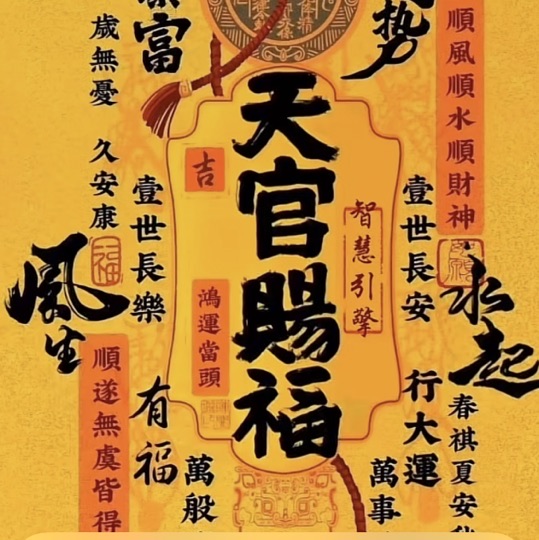 富
勢
歲無憂 久安康
順風順水順財神
天官賜福
吉
智慧引擎
鴻運當頭
壹世長樂
壹世長安
風生
水起
福
順遂無虞皆得
有福
行大運
春祺夏安
萬般
萬事